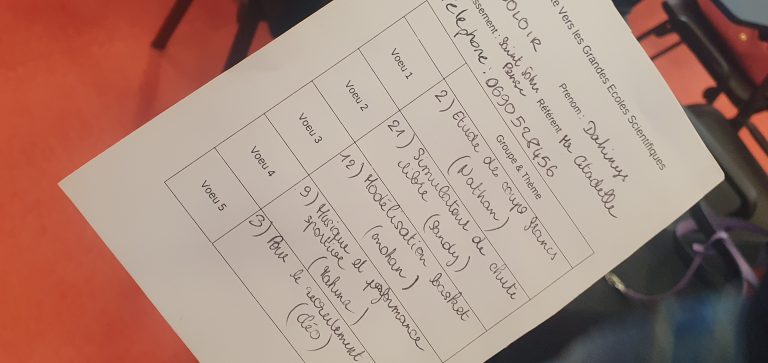 te Vers les Grandes Ecoles Scientifiques
OLOIR
Prenom : Dahinys
issement : Saint John Perse
Référent Mr Citadelle
telephone : 0690528456
Groupe & Thème
Voeu 1
2) Etude des coups francs
(Nathan)
Voeu 2
21) Simulateur de chute
libre (Sandy)
Voeu 3
12) Modélisation basket
(mohan)
Voeu 4
9) Musique et performance
sportive (Rahma)
Voeu 5
3) Pour le recrutement
(Cléo)